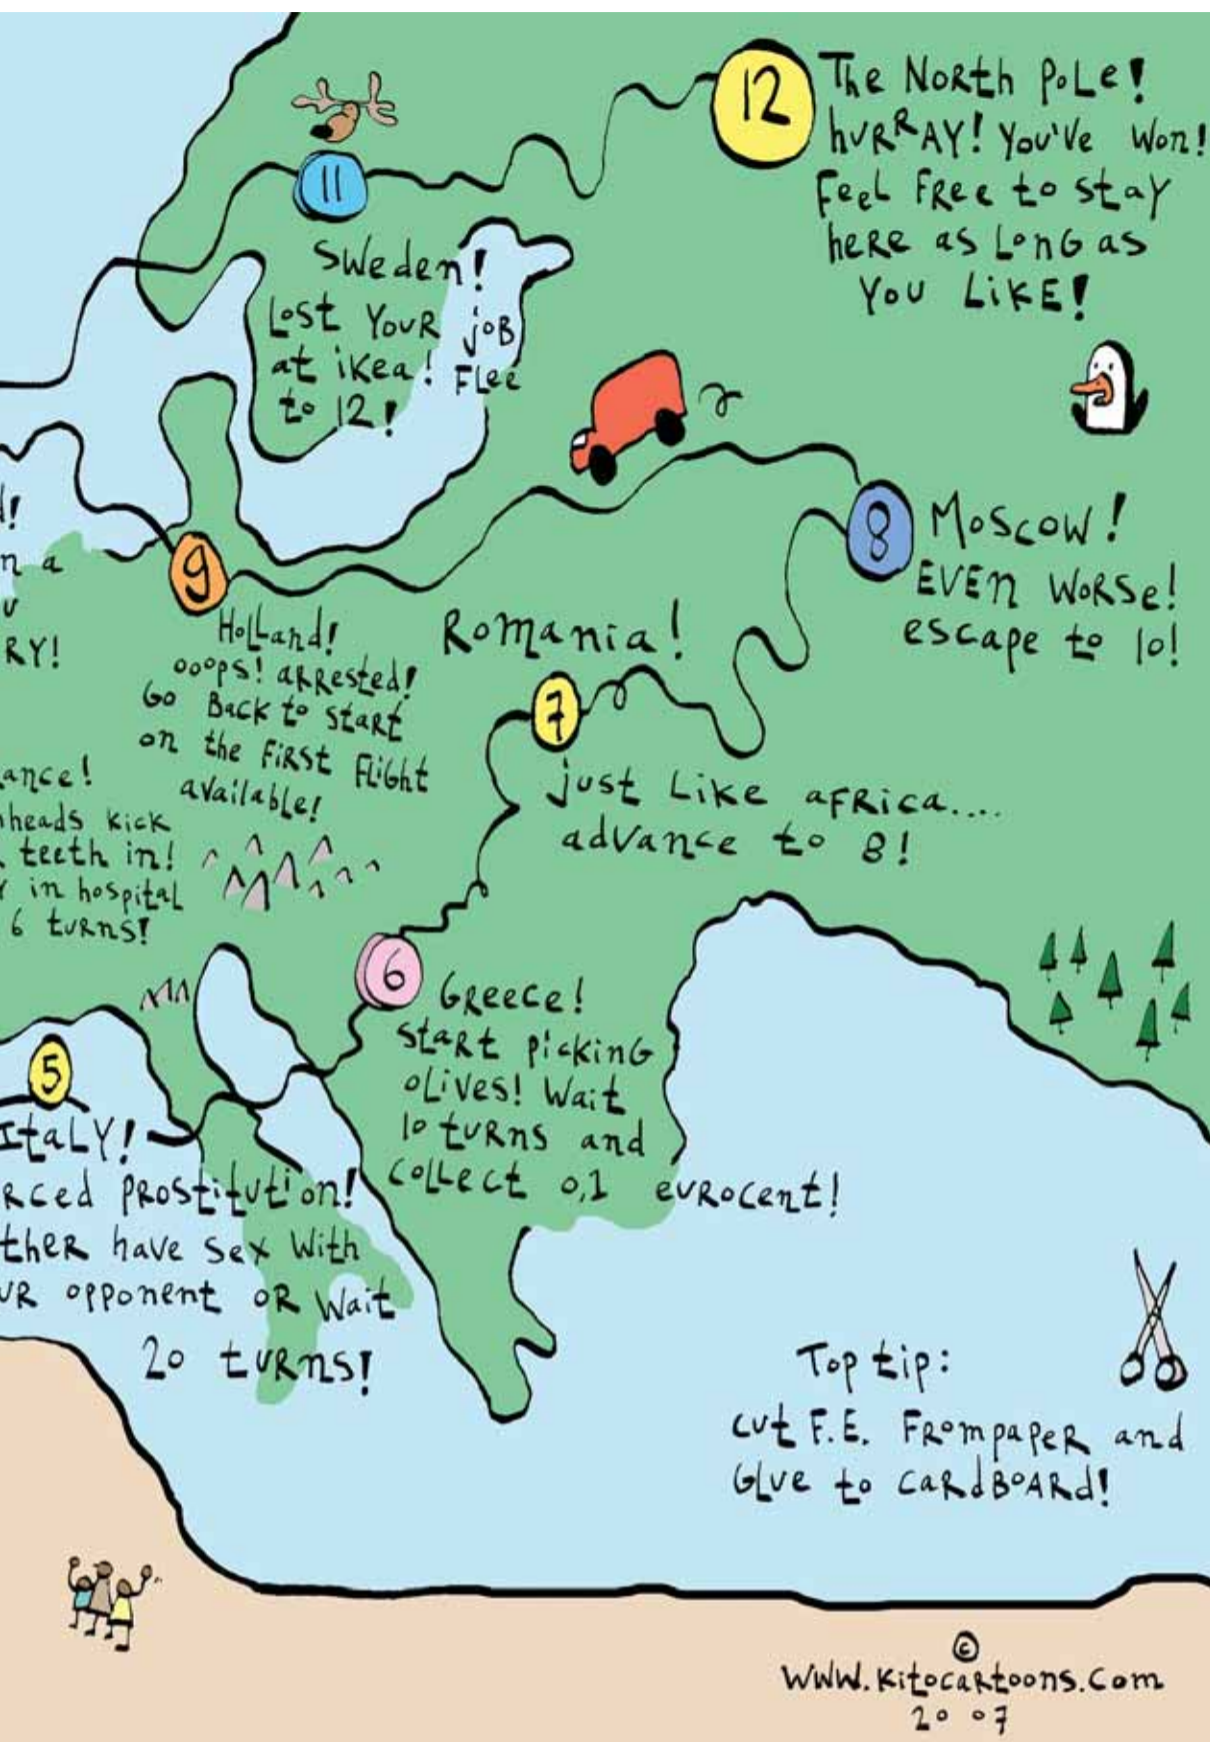 12
The North Pole!
hurray! You've won!
Feel free to stay
here as long as
you like!
11
Sweden!
Lost your job
at ikea! Flee
to 12!
8
Moscow!
Even worse!
escape to 10!
9
Holland!
ooops! arrested!
Go Back to start
on the first flight
available!
n a
RY!
Romania!
7
just like africa....
advance to 8!
ance!
heads kick
teeth in!
in hospital
6 turns!
6
Greece!
start picking
olives! Wait
10 turns and
collect 0,1 eurocent!
5
Italy!
rced prostitution!
ther have sex with
ur opponent or wait
20 turns!
Top tip:
cut F.E. From paper and
Glue to cardboard!
©
www.kitocartoons.com
2007